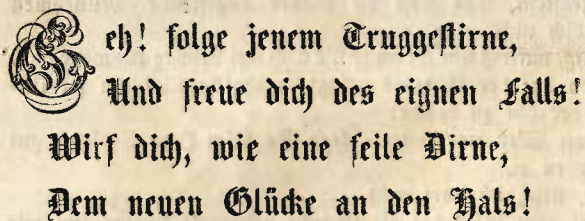 Geh! folge jenem Truggestirne,
Und freue dich des eignen Falls!
Wirf dich, wie eine feile Dirne,
Dem neuen Glücke an den Hals!